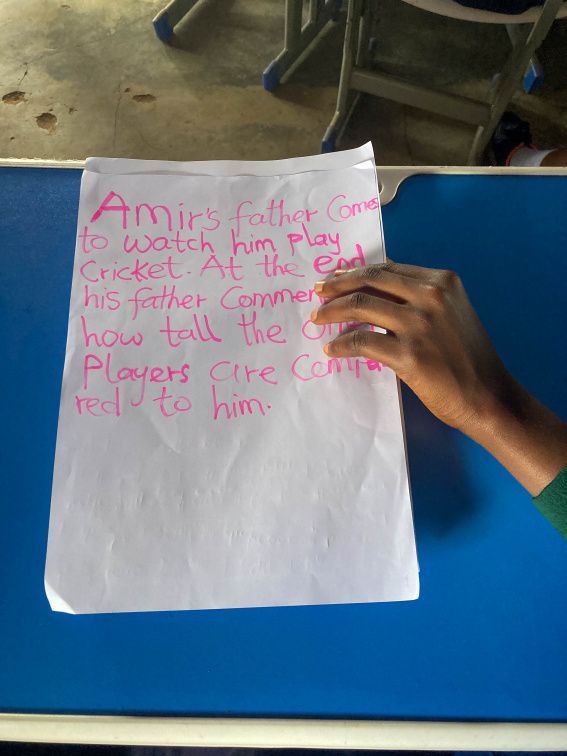 Amir's father Comes
to watch him play
Cricket. At the end
his father Commen
how tall the
Players are Compa
red to him.